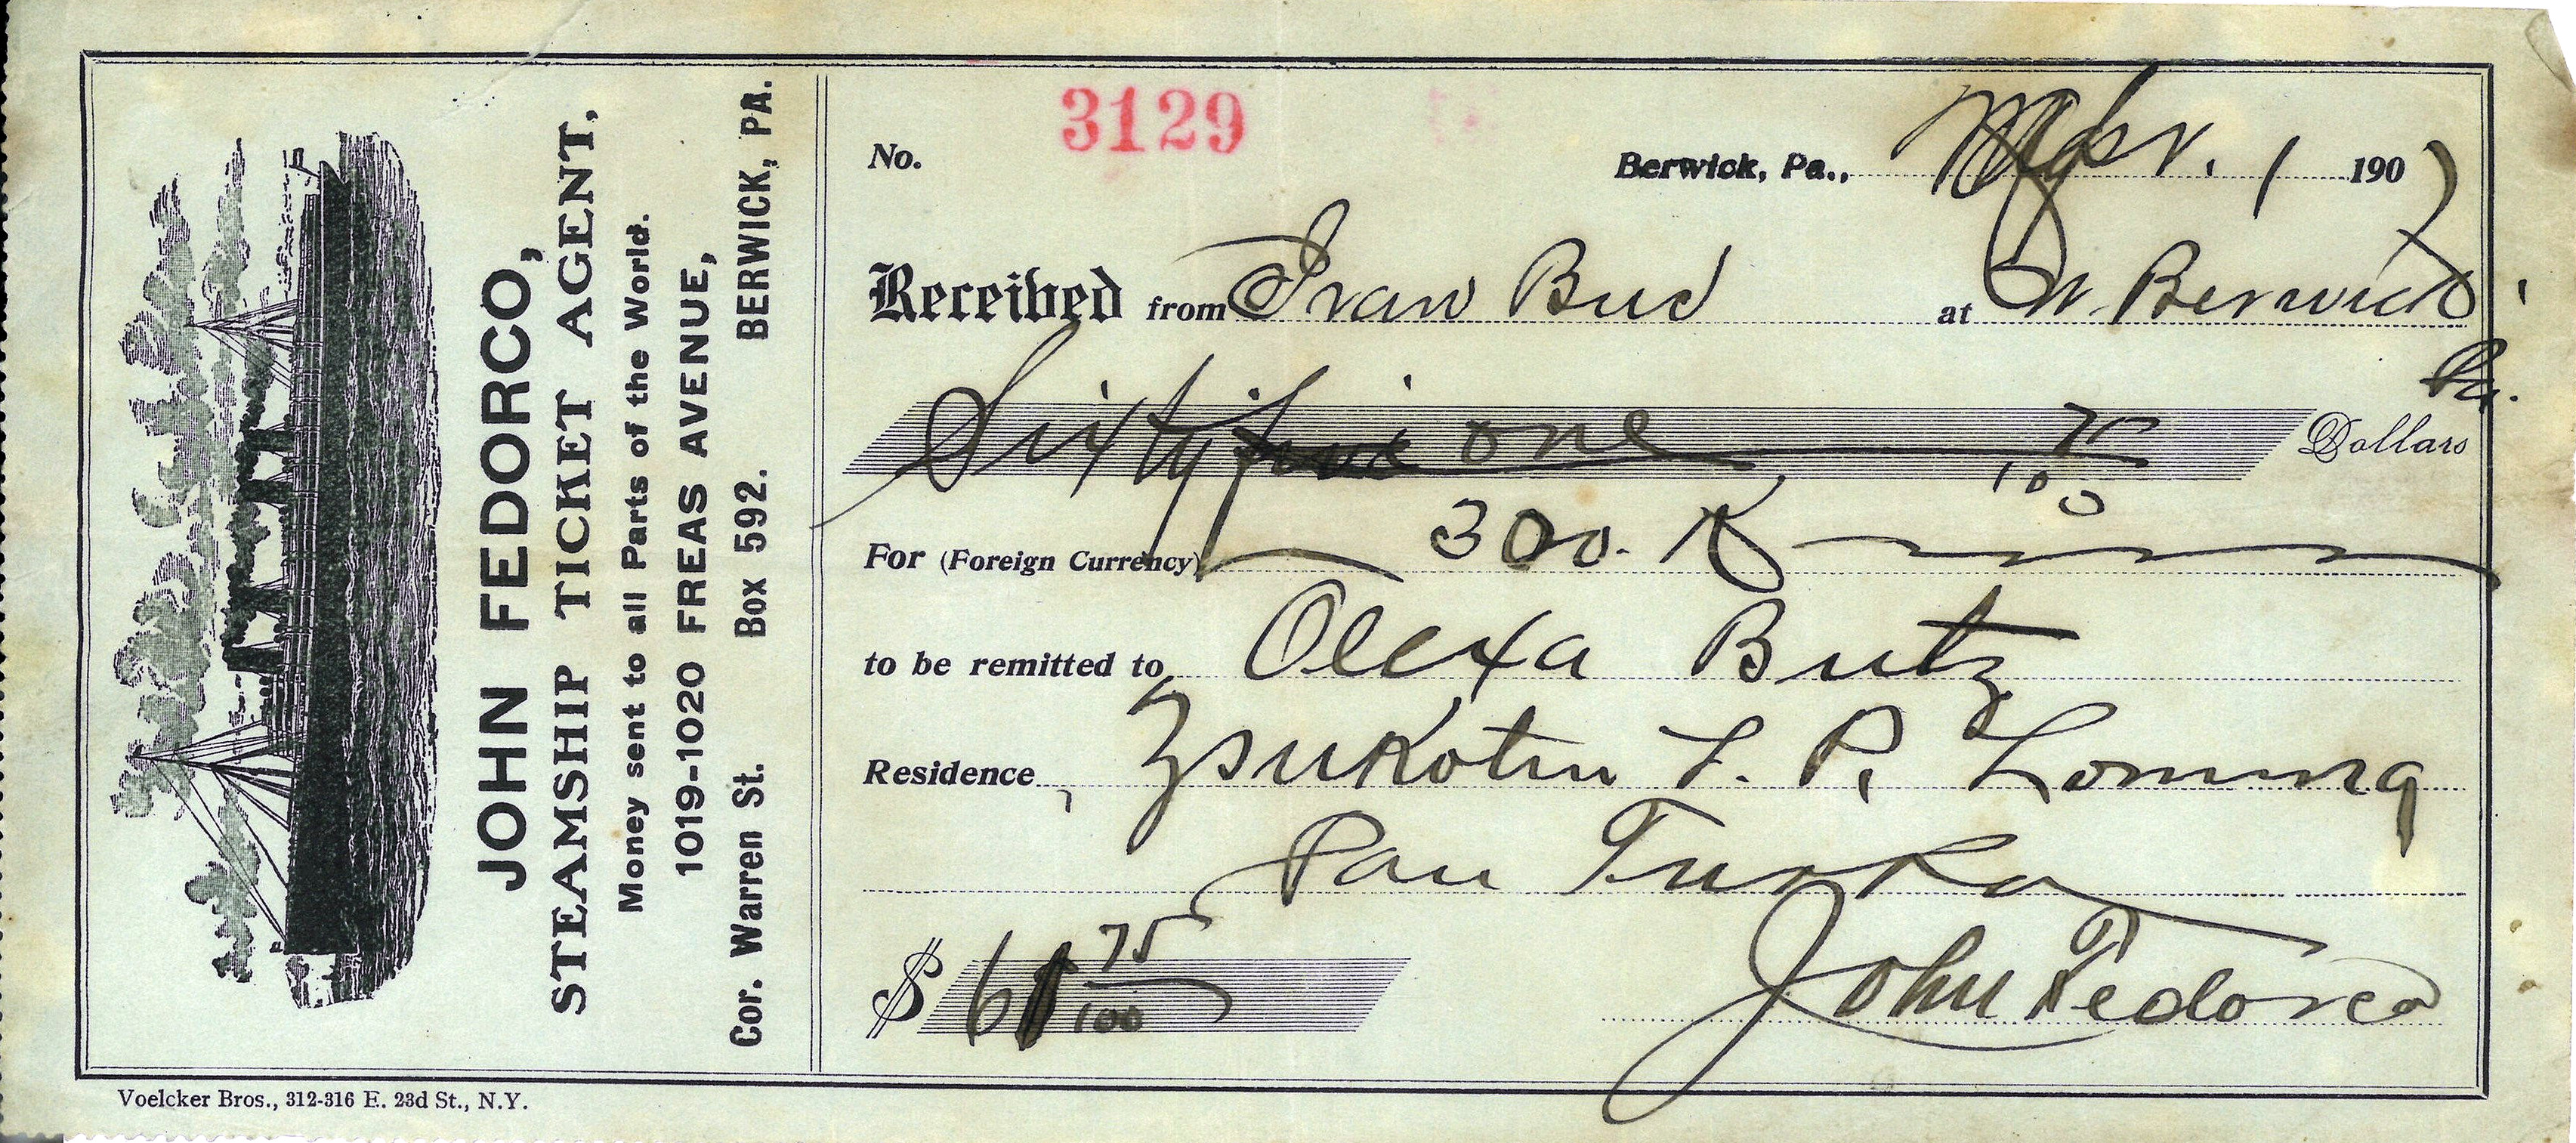 JOHN FEDORCO,
STEAMSHIP TICKET AGENT.
Money sent to all Parts of the World.
1019-1020 FREAS AVENUE,
Cor. Warren St. Box 592. BERWICK, PA.
No. 3129
Berwick, Pa., Apr. 1 1907
Received from Ivan Bud at W. Berwick
Pa.
Sixty five one 75/100 Dollars
For (Foreign Currency) 300. K
to be remitted to Olexa Butz
Residence Zsukotin L. P. Lomna
Pau Turka
$ 61 75/100 John Fedorco
Voelcker Bros., 312-316 E. 23d St., N.Y.